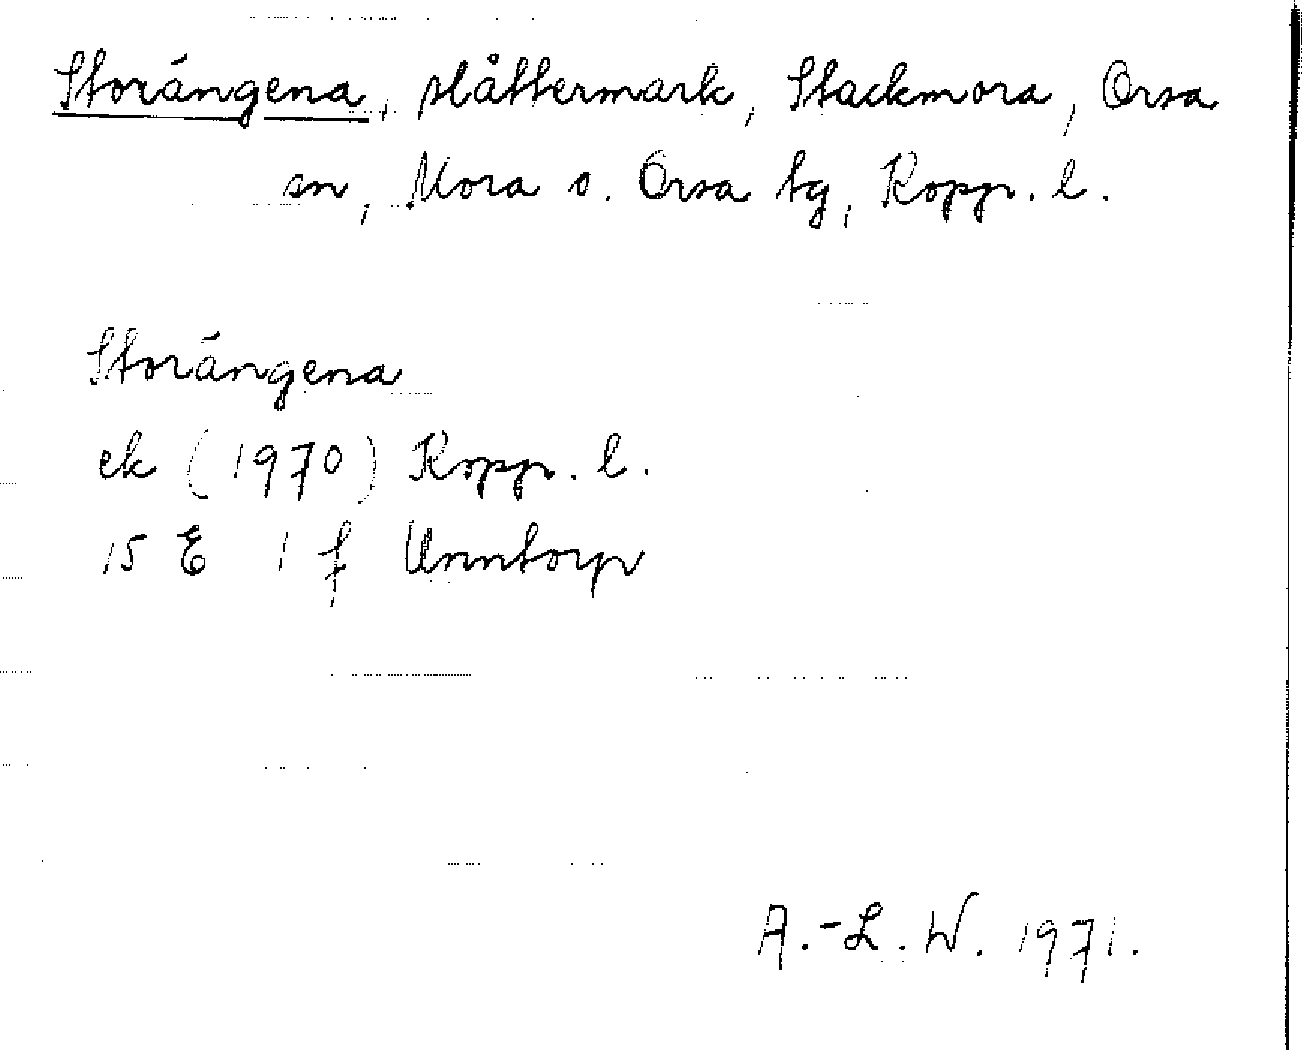 Storängena, slåttermark, Stackmora, Orsa
sn, Mora o. Orsa tg, Kopp. l.
Storängena
ek (1970) Kopp. l.
15 E 1 f Unntorp
A.-L. W. 1971.